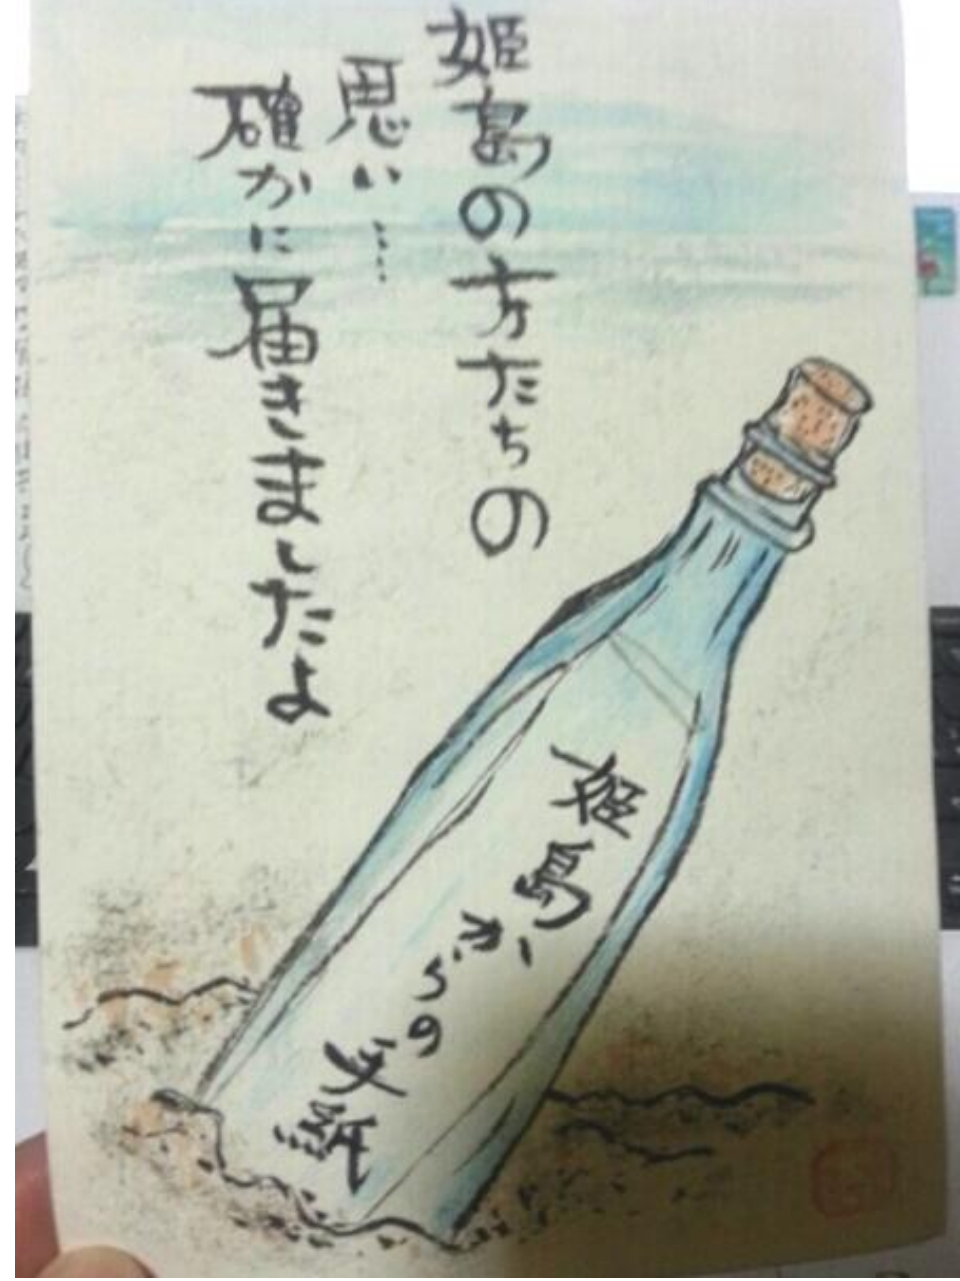 姫島の方たちの
思い…
確かに届きましたよ
姫島からの手紙